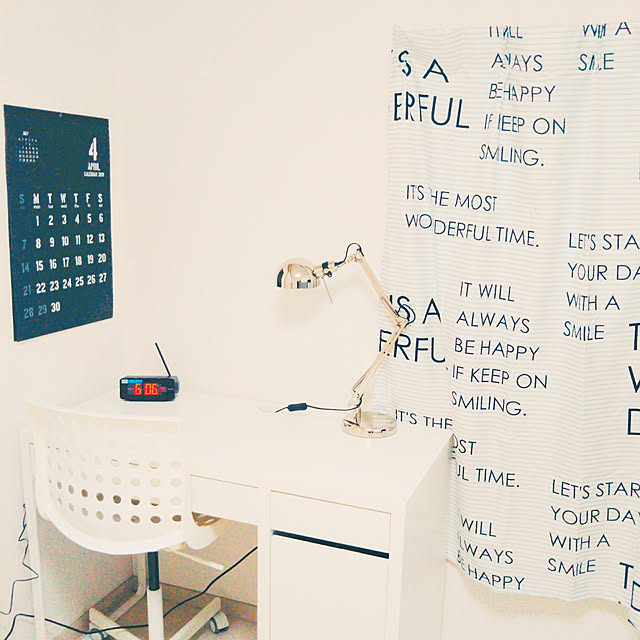 4
APRIL
CALENDAR 2019
S M T W T F S
1 2 3 4 5 6
7 8 9 10 11 12 13
14 15 16 17 18 19 20
21 22 23 24 25 26 27
28 29 30
6:06
'S A
ERFUL
IT WILL
ALWAYS
BE HAPPY
IF KEEP ON
SMILING.
WITH A
SMILE
ITS THE MOST
WODERFUL TIME.
LET'S STA
YOUR DA
WITH A
SMILE
'S A
ERFU
IT WILL
ALWAYS
BE HAPPY
IF KEEP ON
SMILING.
IT'S THE
OST
UL TIME.
LET'S STAR
YOUR DA
WITH A
SMILE
WILL
LWAYS
E HAPPY